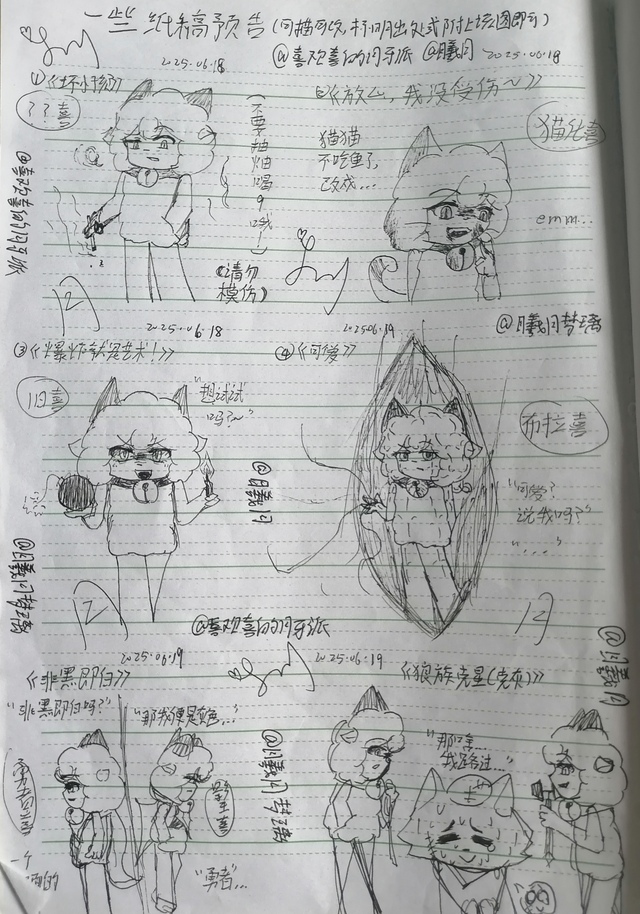 一些纸稿预告(可描可改,标明出处或附上该图即可)
@喜欢喜的月牙派 @曦月 2025.06.18
2025.06.18
①《坏小孩》
??喜
(不要抽烟喝
(请勿
模仿)
②《放心,我没受伤~》
猫猫
不吃鱼了,
改成...
猫化喜
emm...
@喜欢喜的月牙派
@曦月梦璃
2025.06.18
③《爆炸就是艺术!》
旧喜
"想试试
吗?~"
@曦月
@曦月梦璃
202506.19
④《可爱》
布拉喜
"可爱?
说我吗?"
"...."
@喜欢喜的月牙派
2025.06.19
《非黑即白》
"非黑即白吗?"
"那我便是灰色..."
"勇者"...
@曦月梦璃
2025.06.19
《狼族克星(克灰)》
"那啥...
@曦月